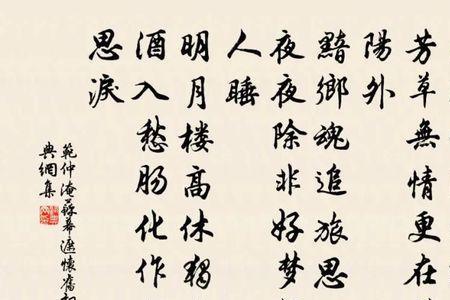 芳草無情更在
陽外
黯鄉魂追旅思
夜夜除非好夢
人睡
明月楼高休獨
酒入愁肠化作
思淚
範仲淹蘇幕遮懷舊
典網集